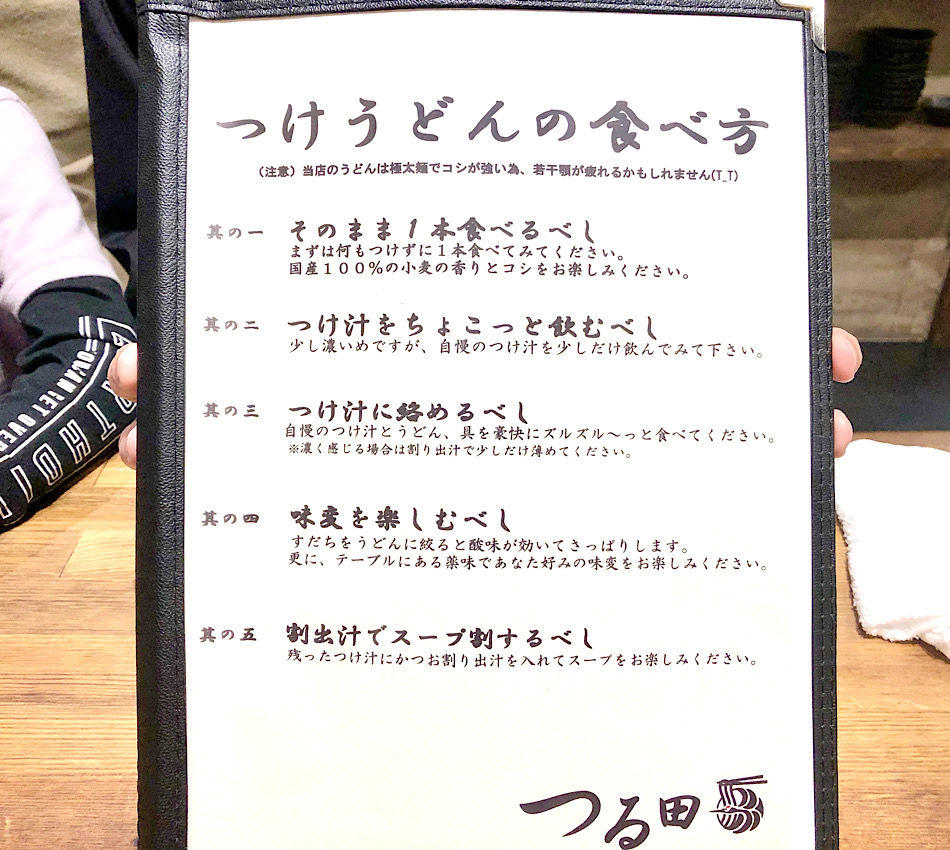 つけうどんの食べ方
(注意)当店のうどんは極太麺でコシが強い為、若干顎が疲れるかもしれません(T_T)
其の一 そのまま1本食べるべし
まずは何もつけずに1本食べてみてください。
国産100%の小麦の香りとコシをお楽しみください。
其の二 つけ汁をちょこっと飲むべし
少し濃いめですが、自慢のつけ汁を少しだけ飲んでみて下さい。
其の三 つけ汁に絡めるべし
自慢のつけ汁とうどん、具を豪快にズルズル〜っと食べてください。
※濃く感じる場合は割り出汁で少しだけ薄めてください。
其の四 味変を楽しむべし
すだちをうどんに絞ると酸味が効いてさっぱりします。
更に、テーブルにある薬味であなた好みの味変をお楽しみください。
其の五 割出汁でスープ割するべし
残ったつけ汁にかつお割り出汁を入れてスープをお楽しみください。
つる田